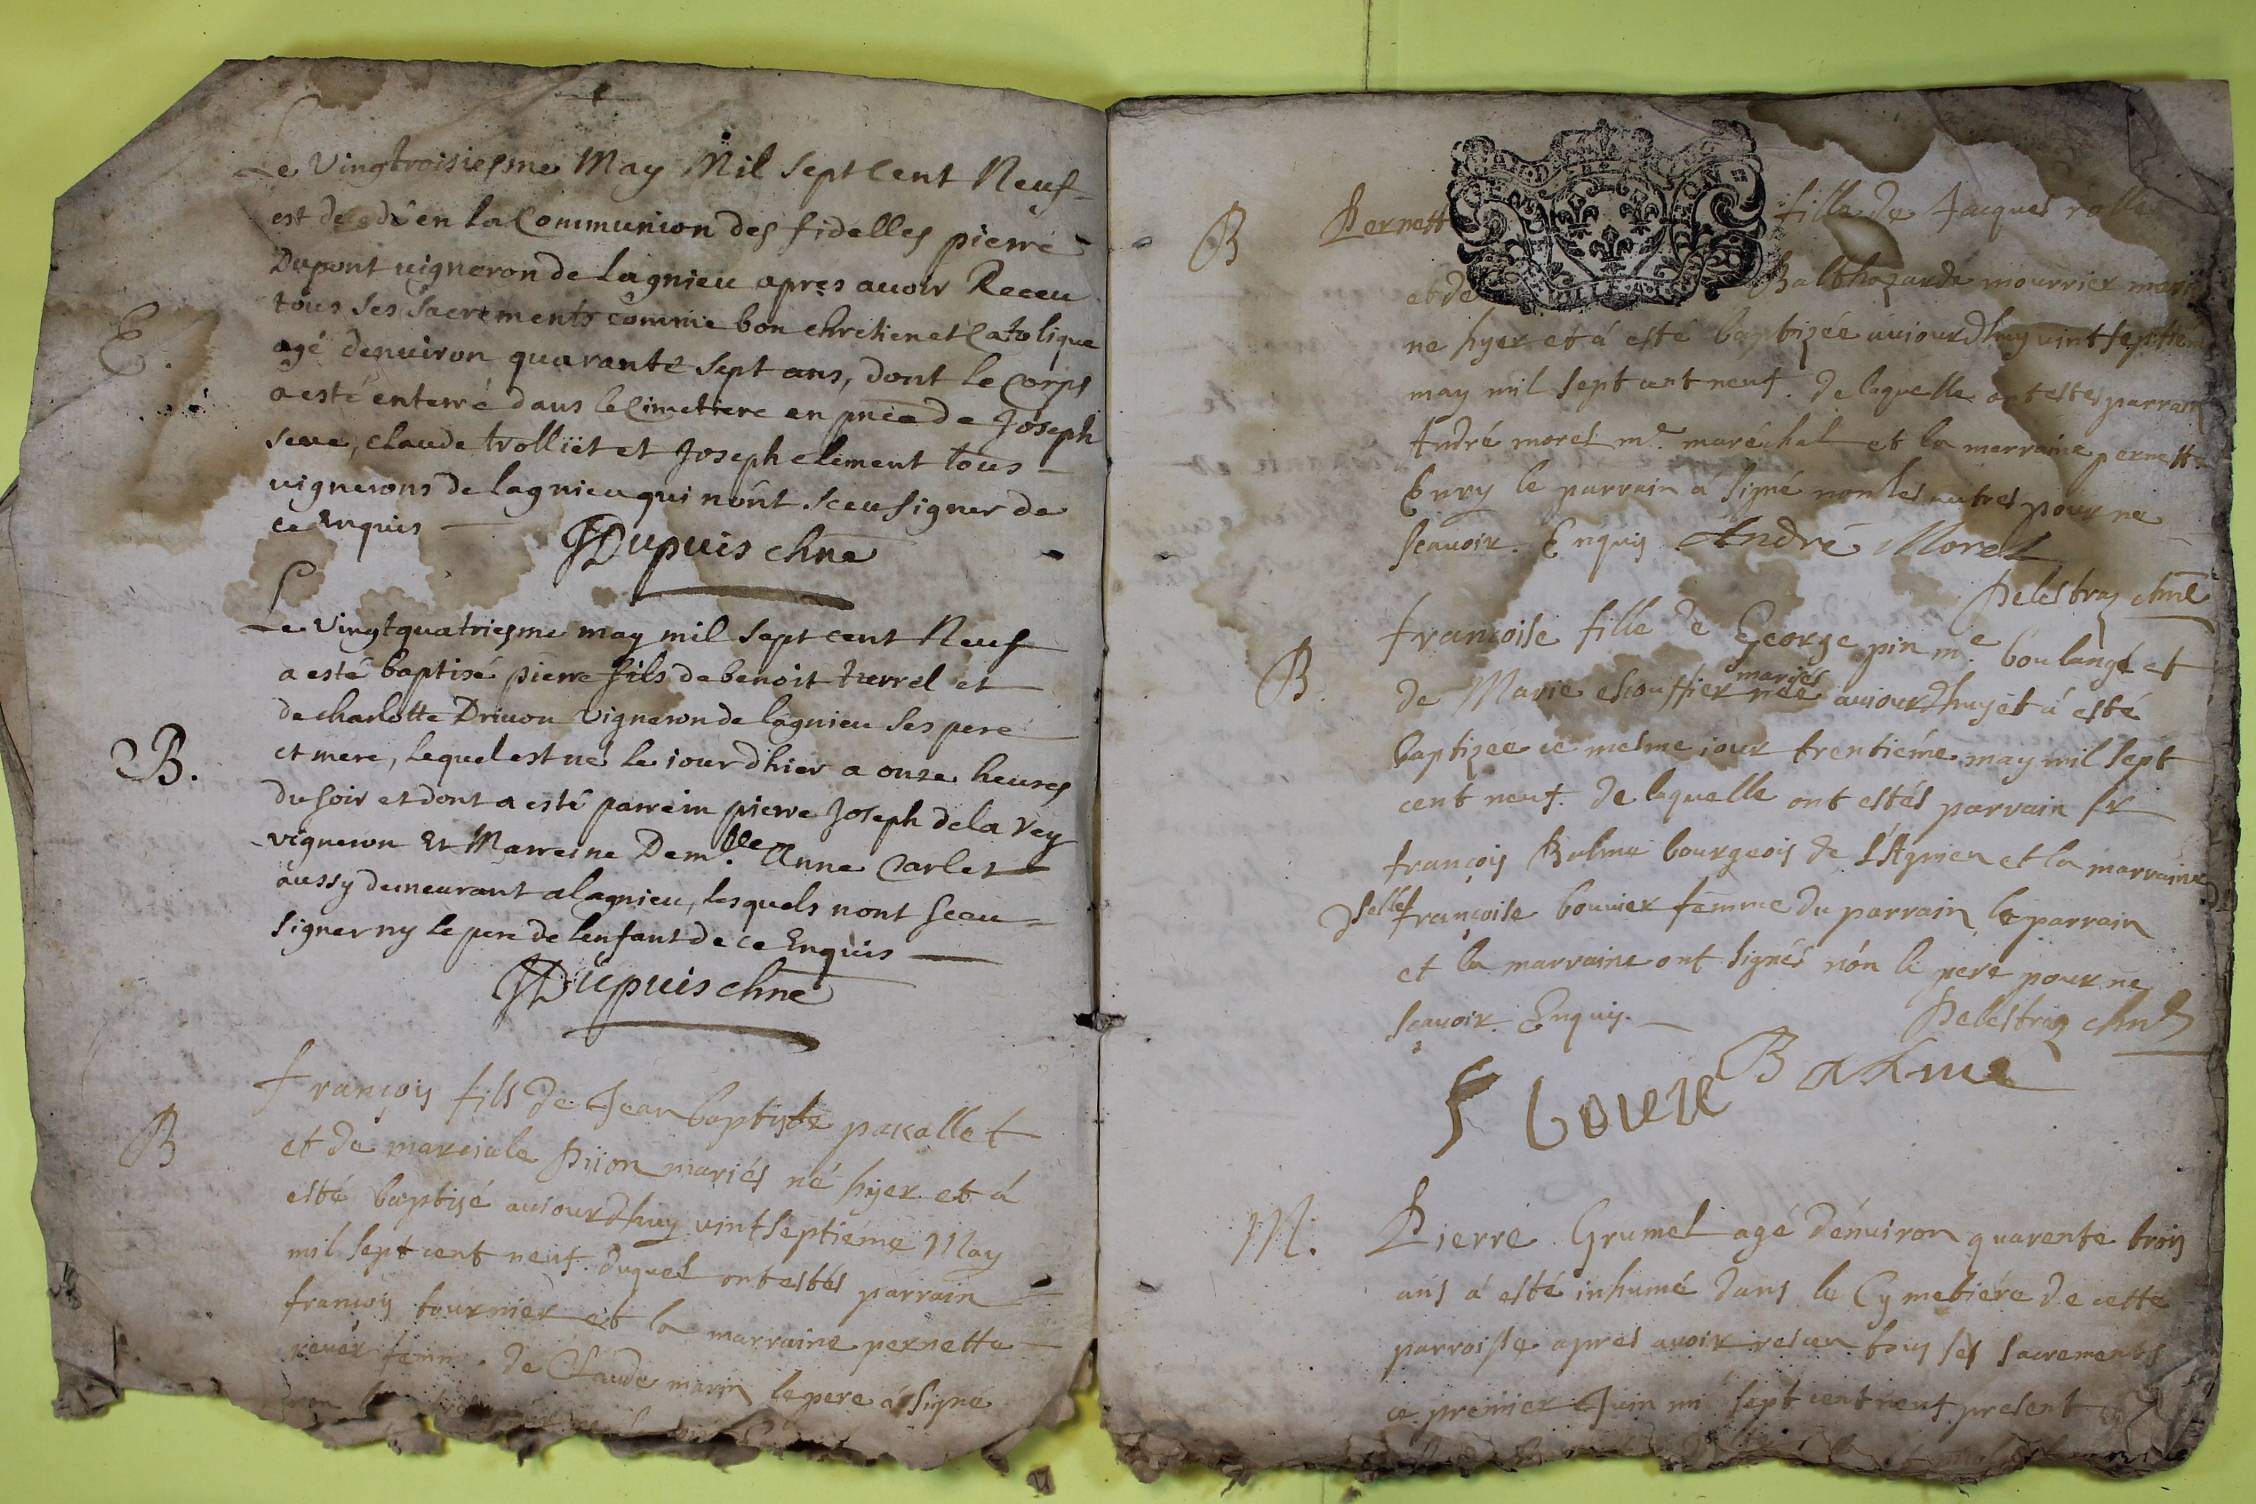 Le Vingtroisiesme May Mil Sept Cent Neuf
est decedé en la Communion des fidelles pierre
Dupont vigneron de lagnieu apres avoir Receu
tous ses sacrements comme bon chretien et Catolique
E.
agé denviron quarante sept ans, dont le Corps
a esté enterré dans le Cimetiere en pnce de Joseph
seve, claude trolliet et Joseph clement tous
vignerons de lagnieu qui nont sceu signer de
ce enquis
JDupuis chne
Le Vingtquatriesme may mil sept cent Neuf
a esté baptisé pierre fils de benoit turrel et
de charlotte Drivon vigneron de lagnieu ses pere
B.
et mere, lequel est né le iourdhier a onze heures
du soir et dont a esté parrein pierre Joseph dela Vey
vigneron Et Marreine Demlle Anne Carlet
aussy demeurant a lagnieu, lesquels nont sceu
signer ny le pere de lenfant de ce Enquis
JDupuis chne
françois fils de Jean baptiste pacallet
B
et de marciale Piion mariés né hyer et á
esté baptizé auiourdhuy vint septiéme May
mil sept cent neuf. Duquel ont estés parrain
françois fournier et la marraine pernette
femm. de Claude marin le pere á signé
B
Pernett fille de Jacques
et de Balthazarde mourrier
ne hyer et á esté baptizée auiourdhuy vint septiém
may mil sept cent neuf. de laquelle ont estes parrain
André morel me. maréchal et la marraine pernette
le parrain á signé non les autres pour ne
scauoir. Enquis André Morel
Pelestraz chne
françoise fille de George pin me. boulangé et
B.
de Marie escoffier mariés née auiourdhuy et á esté
baptizée ce mesme iour trentiéme may mil sept
cent neuf. de laquelle ont estés parrain sr
françois Balme bourgeois de L'Agnieu et la marraine
Dselle françoise bouvier femme du parrain, le parrain
et la marraine ont signés nón le pere pour ne
scauoir. Enquis.
Pelestraz chne
F bouvie Balme
M.
Pierre Grumel agé dénuiron quarente trois
ans á esté inhumé dans le Cymetiére de cette
parroisse apres auoir receu tous ses sacrements
ce premier Juin mil sept cent neuf present